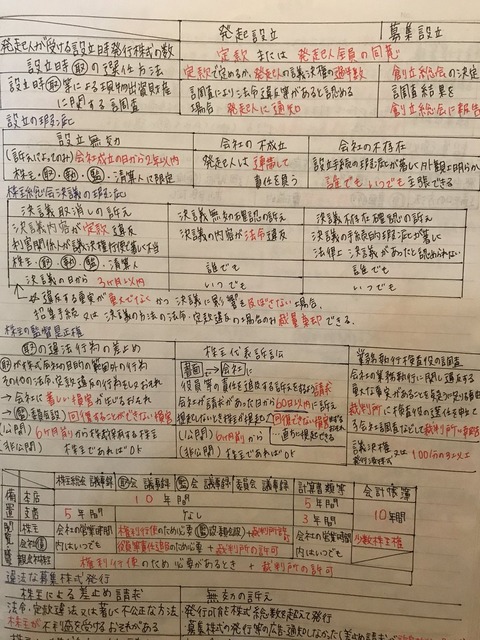 発起設立 募集設立
発起人が受ける設立時発行株式の数 定款 または 発起人全員の同意
設立時(取)の選任方法 定款で定めるか、発起人の議決権の過半数 創立総会の決定
設立時(取)等による現物出資財産に関する調査 調査により法令違反等があると認める場合 発起人に通知 調査結果を創立総会に報告
設立の瑕疵
設立無効 会社の不成立 会社の不存在
(訴えによってのみ)会社成立の日から2年以内 発起人は連帯して 設立手続の瑕疵が著しく外観上明らか
株主・(取)・(監)・清算人に限定 責任を負う 誰でもいつでも主張できる
株主総会決議の瑕疵
決議取消しの訴え 決議無効確認の訴え 決議不存在確認の訴え
決議内容が定款違反 決議の内容が法令違反 決議の手続的瑕疵が著しく
利害関係人が議決権行使し著しく不当 法律上決議があったと認められない
株主・(取)・(監)・清算人 誰でも 誰でも
決議の日から3ヶ月以内 いつでも いつでも
違反する事実が重大でなく かつ 決議に影響を及ぼさない場合、
招集手続又は決議の方法の法令・定款違反の場合のみ裁量棄却できる。
株主の監督是正権
(取)の違法行為の差止め 株主代表訴訟 業務執行検査役の調査
(取)が株式会社の目的の範囲外の行為 書面→会社に 会社の業務執行に関し違反する
その他の法令・定款違反の行為をするおそれ 役員等の責任を追及する訴えを提起する請求 重大な事実があることを疑うに足りる事由
→会社に著しい損害が生じるおそれ 会社が請求があった日から60日以内に訴え 裁判所に検査役の選任を申立て
回復することができない損害 提起しないとき株主が提起 回復できない損害
(公開)6ヶ月前から株式保有する株主 (公開)6ヶ月前から 直ちに提起できる 議決権 又は 100分の3以上
(非公開) 株主であればOK (非公開) 株主であればOK
株主総会 議事録 (取)会 議事録 (監)会 議事録 委員会 議事録 計算書類等 会計帳簿
備置 本店 10年間 5年間 10年間
支店 5年間 なし 3年間
閲覧 株主 会社の営業時間内はいつでも 権利行使のため必要 +裁判所許可 会社の営業時間内はいつでも 少数株主権
会社(債) 役員等責任追及のため必要 + 裁判所の許可
親会社株主 権利行使のため必要があるとき + 裁判所の許可
違法な募集株式発行
株主による差止め請求 無効の訴え
法令・定款違法 又は 著しく不公正な方法 ・発行可能株式総数を超えて発行
株主が不利益を受けるおそれがある ・募集株式の発行等の公告・通知しなかった